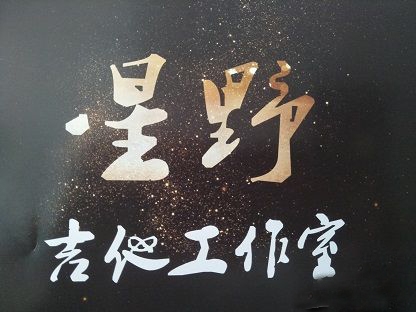 星野
吉他工作室